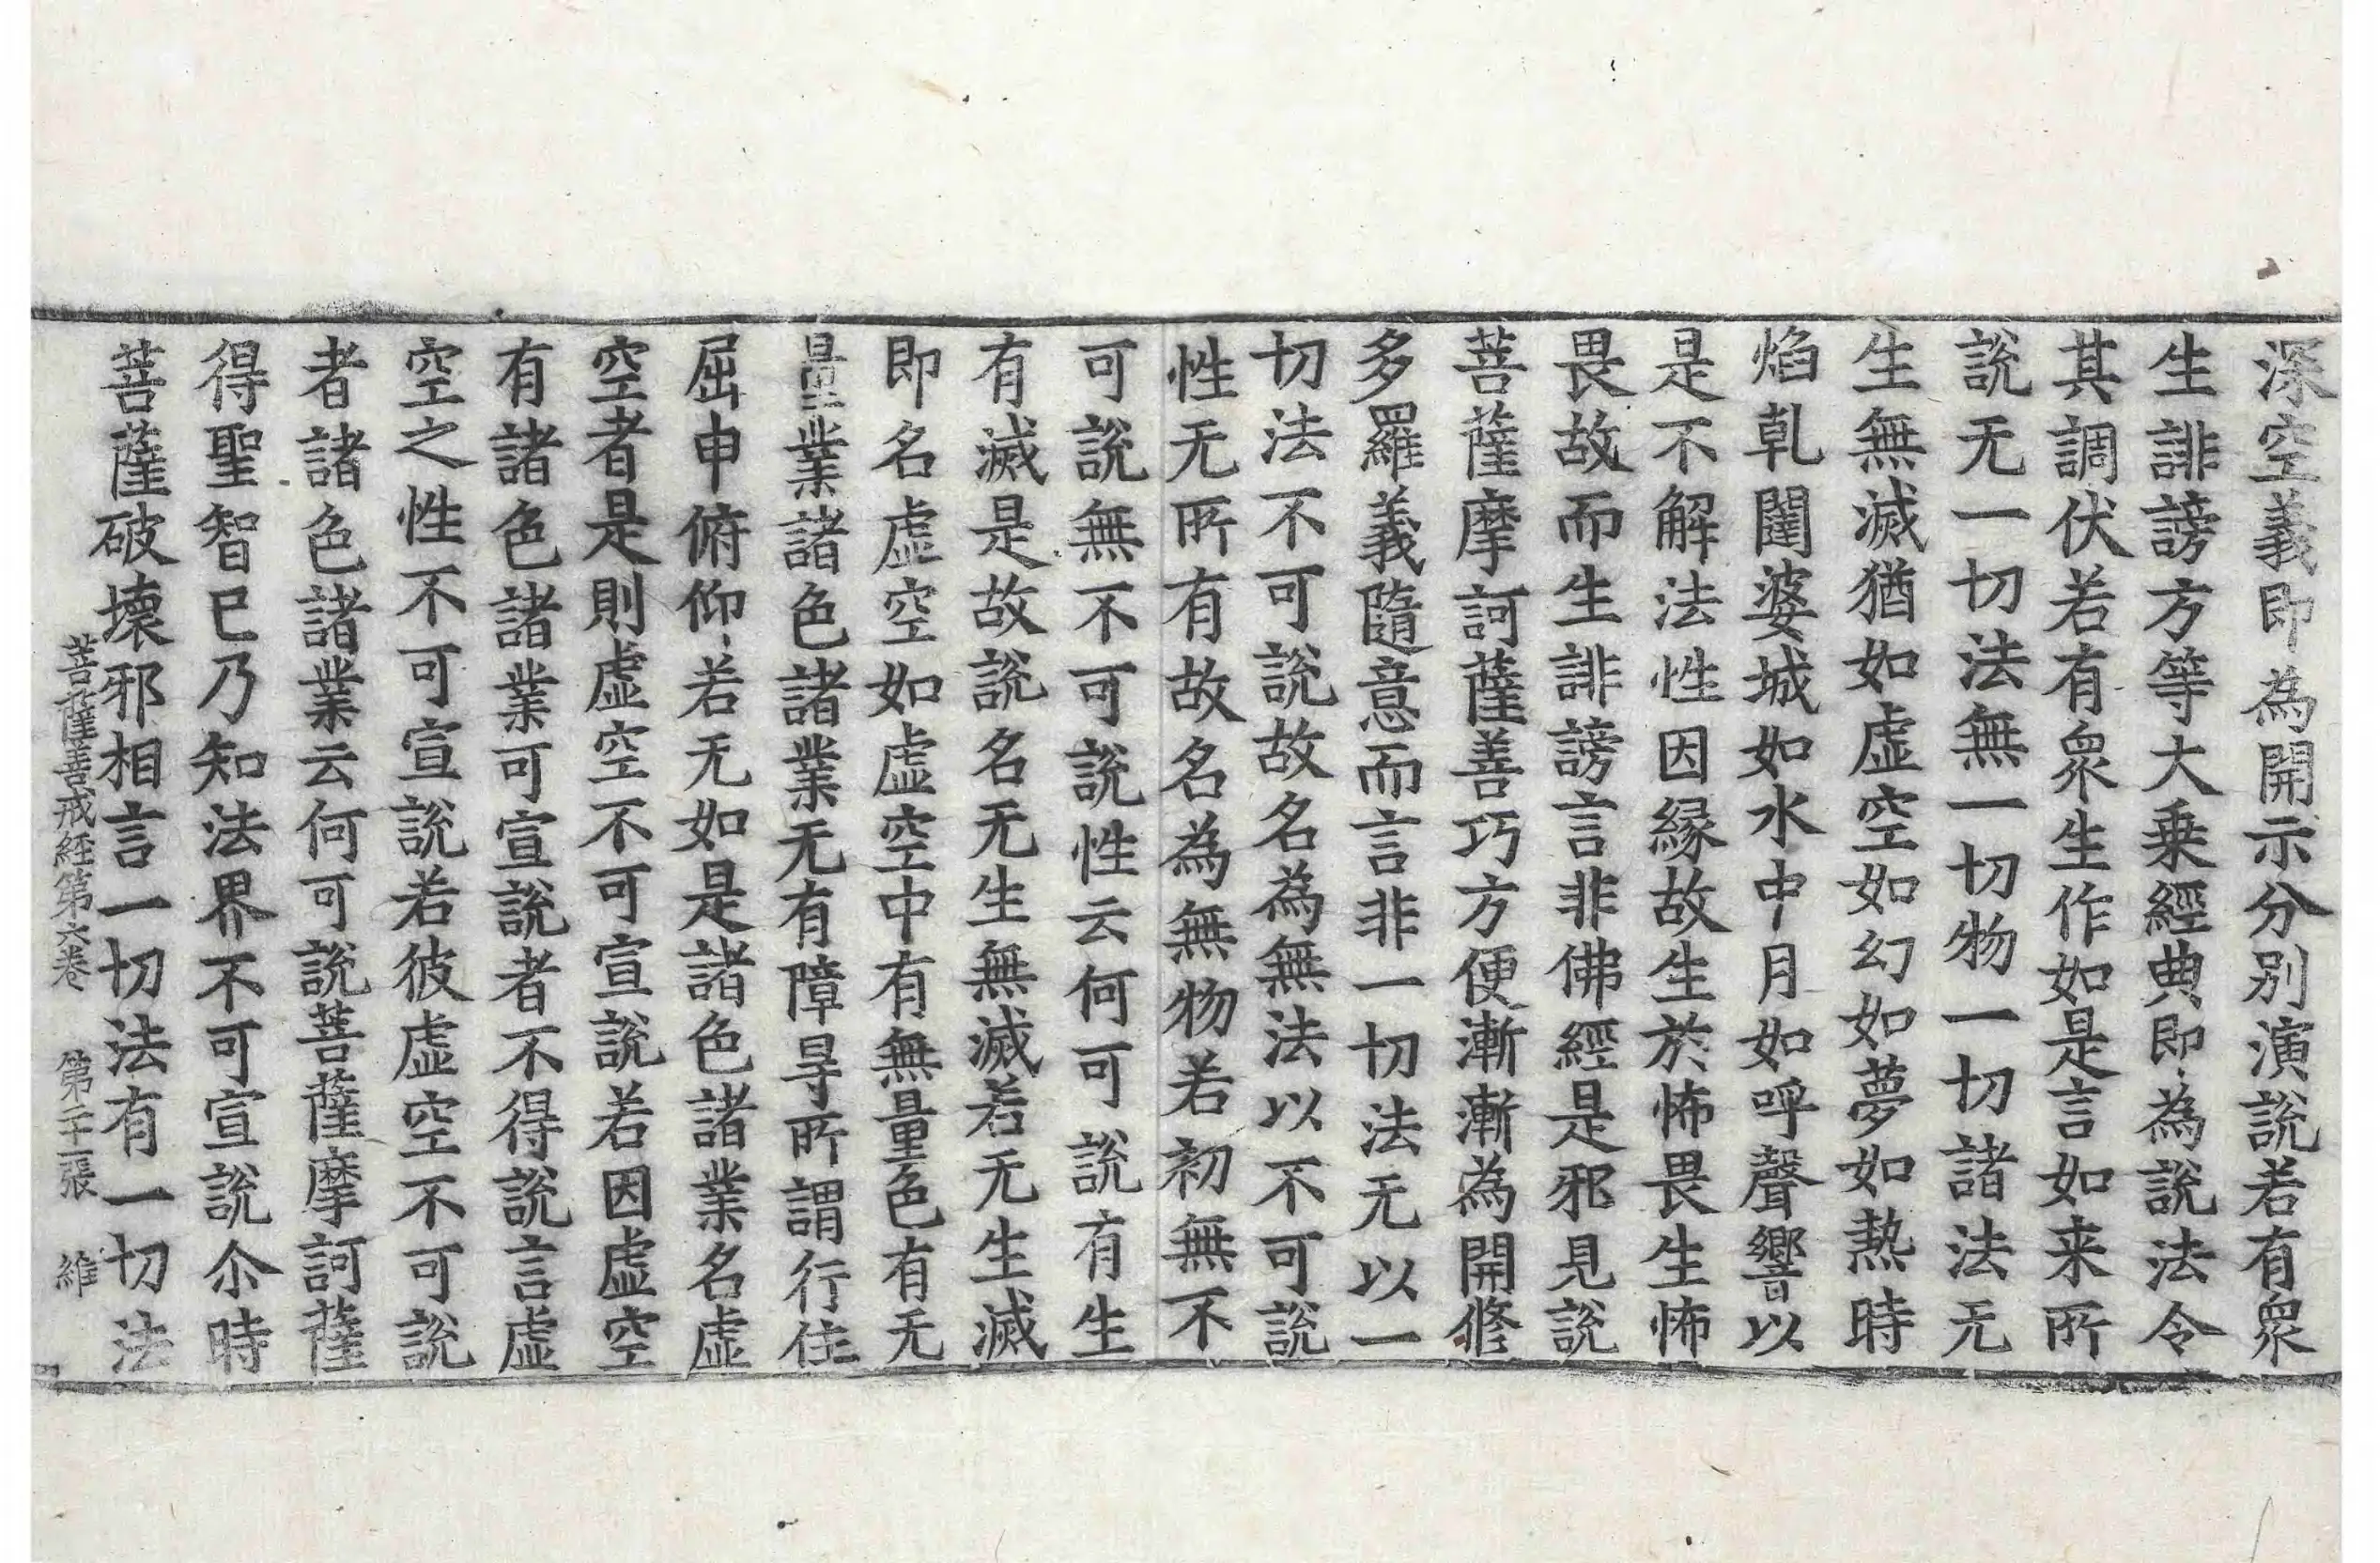 深空義即為開示分别演說若有衆
生誹謗方等大乗經典即為說法令
其調伏若有衆生作如是言如来所
說无一切法無一切物一切諸法无
生無滅猶如虛空如幻如夢如熱時
焰乹闥婆城如水中月如呼聲響以
是不解法性因緣故生於怖畏生怖
畏故而生誹謗言非佛經是邪見說
菩薩摩訶薩善巧方便漸漸為開修
多羅義隨意而言非一切法无以一
切法不可說故名為無法以不可說
性无所有故名為無物若初無不
可說無不可說性云何可說有生
有滅是故說名无生無滅若无生滅
即名虛空如虛空中有無量色有无
量業諸色諸業无有障㝵所謂行住
屈申俯仰若无如是諸色諸業名虛
空者是則虛空不可宣說若因虛空
有諸色諸業可宣說者不得說言虛
空之性不可宣說若彼虛空不可說
者諸色諸業云何可說菩薩摩訶薩
得聖智已乃知法界不可宣說尒時
菩薩破壞邪相言一切法有一切法
菩薩善戒経第六卷 第二十一張 維